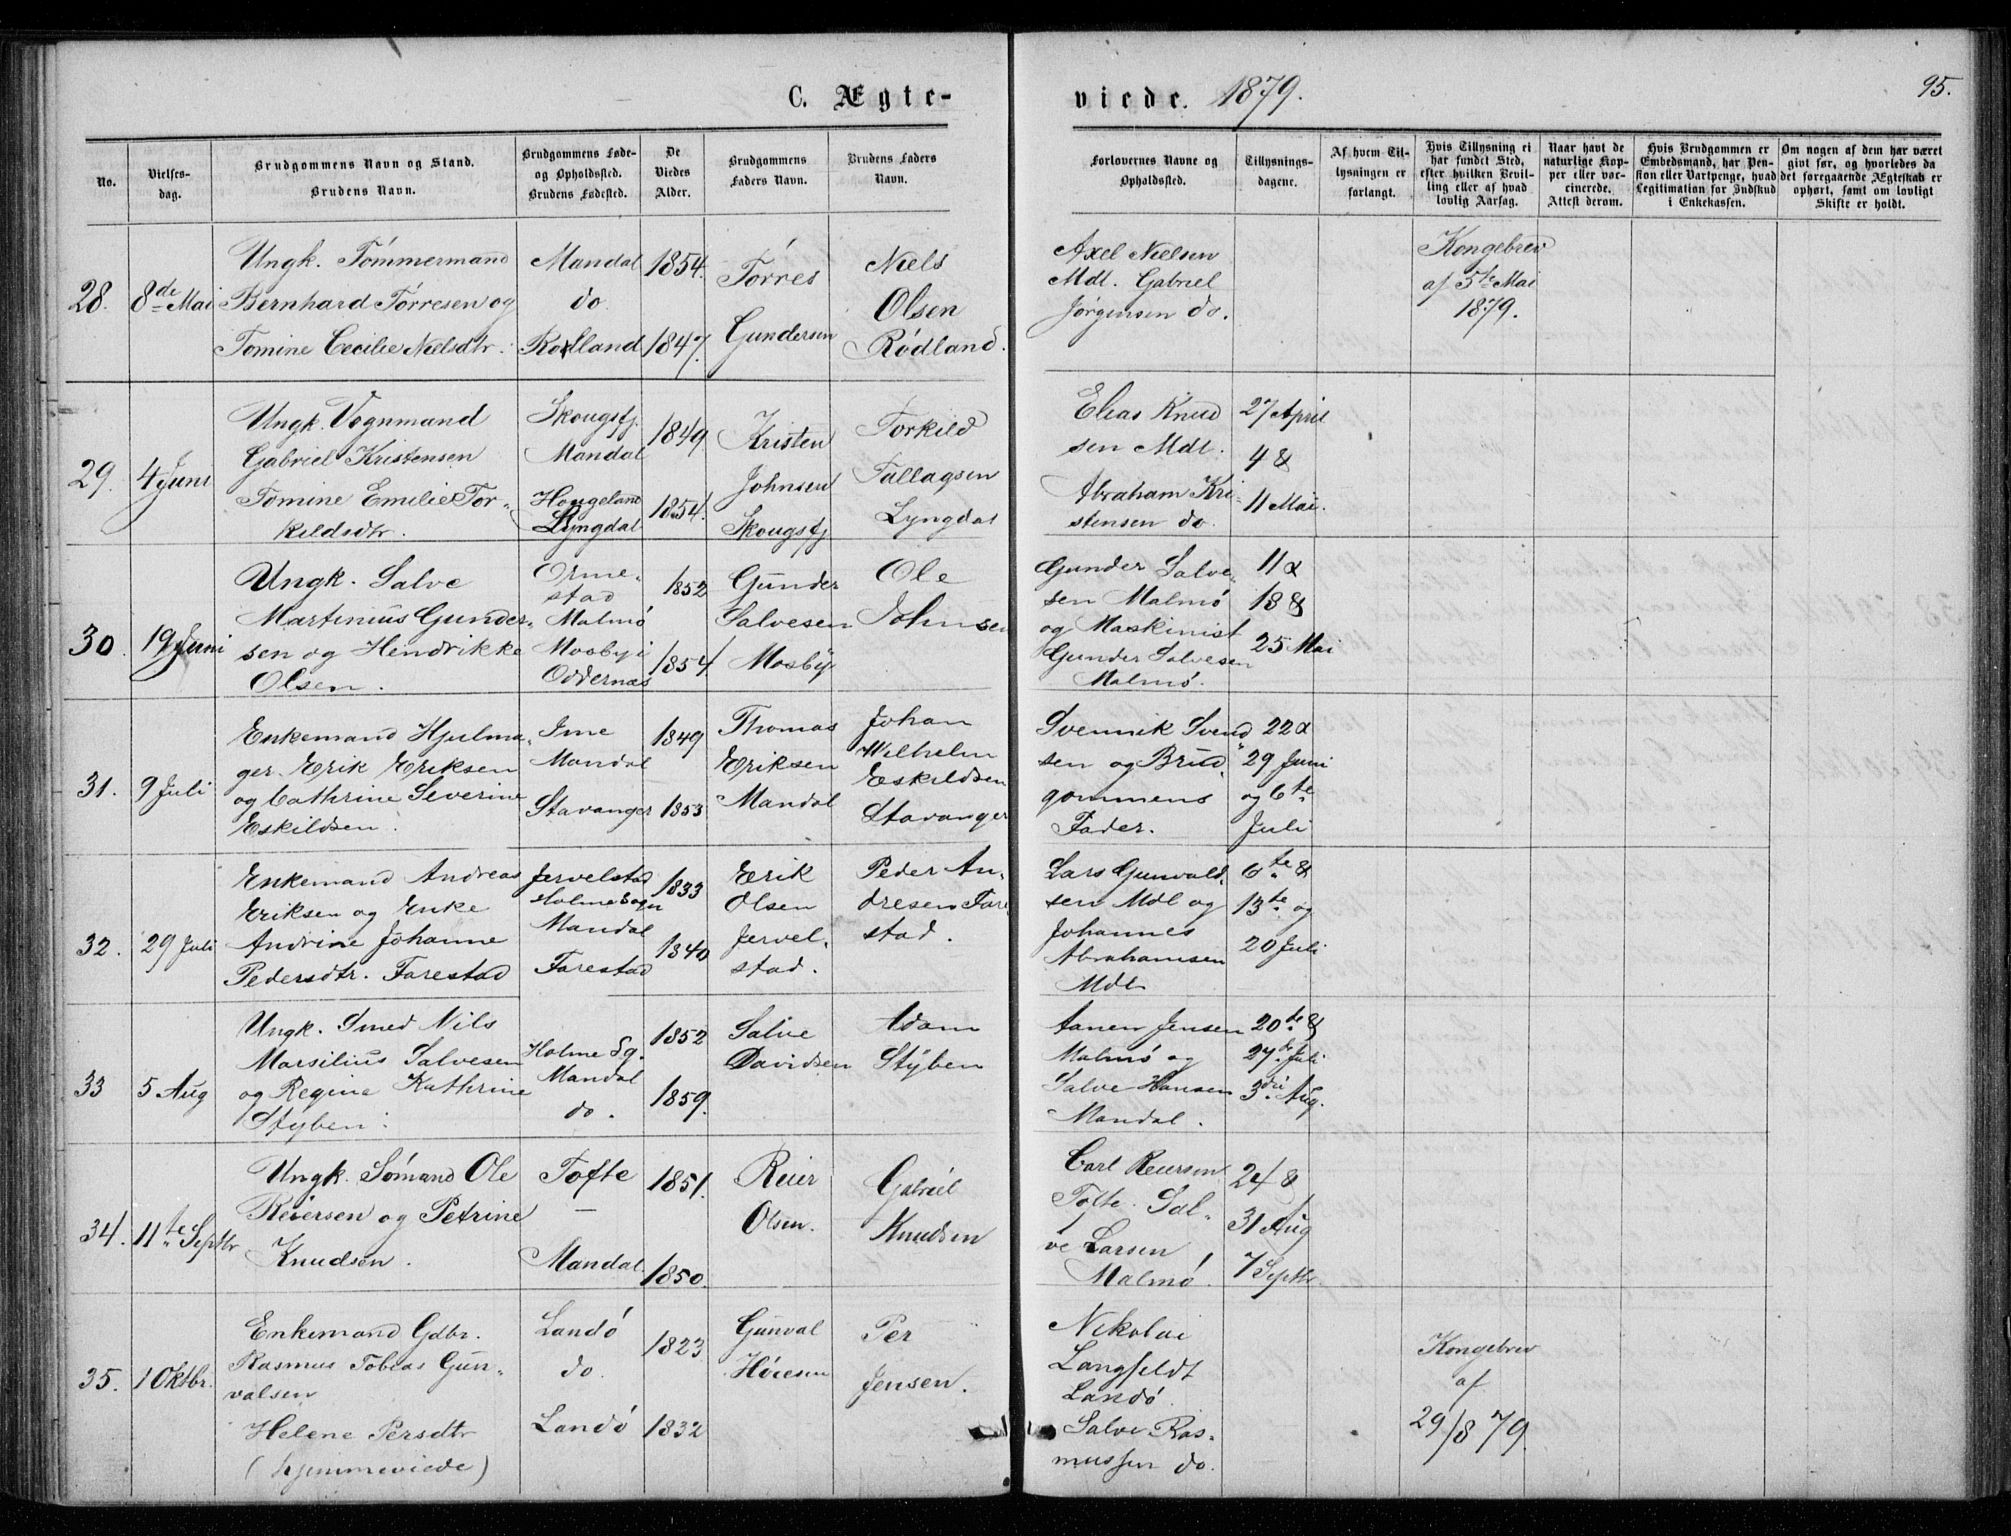 C. Ægte-
viede. 1879.
95.
No.
Vielses-
dag.
Brudgommens Navn og Stand.
Brudens Navn.
Brudgommens Føde-
og Opholdssted.
Brudens Fødested.
De
Viedes
Alder.
Brudgommens
Faders Navn.
Brudens Faders
Navn.
Forlovernes Navne og
Opholdssted.
Tillysnings-
dagene.
Af hvem Til-
lysningen er
forlangt.
Hvis Tillysning ei
har fundet Sted,
efter hvilken Bevil-
ling eller af hvad
lovlig Aarsag.
Naar havt de
naturlige Kop-
per eller vac-
cinerede.
Attest derom.
Hvis Brudgommen er
Embedsmand, har Pen-
sion eller Vartpenge, hvad
Legitimation for Indskud
i Enkekassen.
Om nogen af dem har været
givt før, og hvorledes da
det foregaaende Ægteskab er
ophørt, samt om lovligt
Skifte er holdt.
28. 8de Mai
Ungk. Tömmermand
Bernhard Törresen og
Tomine Cecilie Nielsdtr.
Mandal
do
Rødland
1854.
1847.
Törres
Gundersen
Niels
Olsen
Rödland.
Axel Nielsen
Mdl. Gabriel
Jørgensen do.
Kongebrev
af 5te Mai
1879.
29. 4 Juni
Ungk. Vognmand
Gabriel Kristensen
Tomine Emilie Tor-
kildsdtr.
Skougsfj.
Mandal
Hougeland
Lyngdal
1849
1854.
Kristen
Johnsen
Skougsfj
Torkild
Tallagsen
Lyngdal
Elias Knud
sen Mdl.
Abraham Kri-
stensen do.
27 April
4 &
11 Mai.
30. 19 Juni
Ungk. Salve
Martinius Gunder-
sen og Hendrikke
Olsen.
Orme-
stad
Malmö
Mosby i
Oddernæs
1852
1854
Gunder
Salvesen
Mosby
Ole
Johnsen
Gunder Salve-
sen Malmö
og Maskinist
Gunder Salvesen
Malmö.
11 &
18 &
25 Mai
31. 9 Juli
Enkemand Hjulma-
ger. Erik Eriksen
og Cathrine Severine
Eskildsen.
Ime
Mandal
Stavanger
1849
1853
Thomas
Eriksen
Mandal
Johan
Wilhelm
Eskildsen
Stavanger
Svennik Svend
sen og Brud-
gommens
Fader.
22 &
29 Juni
og 6te
Juli
32. 29 Juli
Enkemand Andreas
Eriksen og Enke
Andrine Johanne
Pedersdtr. Farestad
Jervelstad
Holme Sogn
Mandal
Farestad
1833
1840
Erik
Olsen
Jervel-
stad.
Peder An-
dresen Fare
stad.
Lars Gunvald-
sen Mdl og
Johannes
Abrahamsen
Mdl
6te &
13te og
20 Juli
33 5 Aug
Ungk. Smed Nils
Marsilius Salvesen
og Regine Kathrine
Styben.
Holme Sg.
Mandal
do.
1852
1859.
Salve
Davidsen
Adam
Styben
Aanen Jensen
Malmö og
Salve Hansen
Mandal.
20de &
27de Juli
3die Aug.
34. 11te Septbr
Ungk. Sömand Ole
Reiersen og Petrine
Knudsen.
Tofte
—
Mandal
1851.
1850.
Reier
Olsen.
Gabriel
Knudsen
Carl Reiersen
Tofte. Sal-
ve Larsen
Malmö.
24 &
31 Aug
7 Septbr
35. 1 Oktbr.
Enkemand Gdbr.
Rasmus Tobias Gun-
valsen
Helene Persdtr
(hjemmeviede)
Landö
do.
Landö
1823
1832
Gunval
Per
Jensen.
Nikolai
Langfeldt
Landö
Salve Ras-
mussen do.
Kongebrev
af
29/8 79.